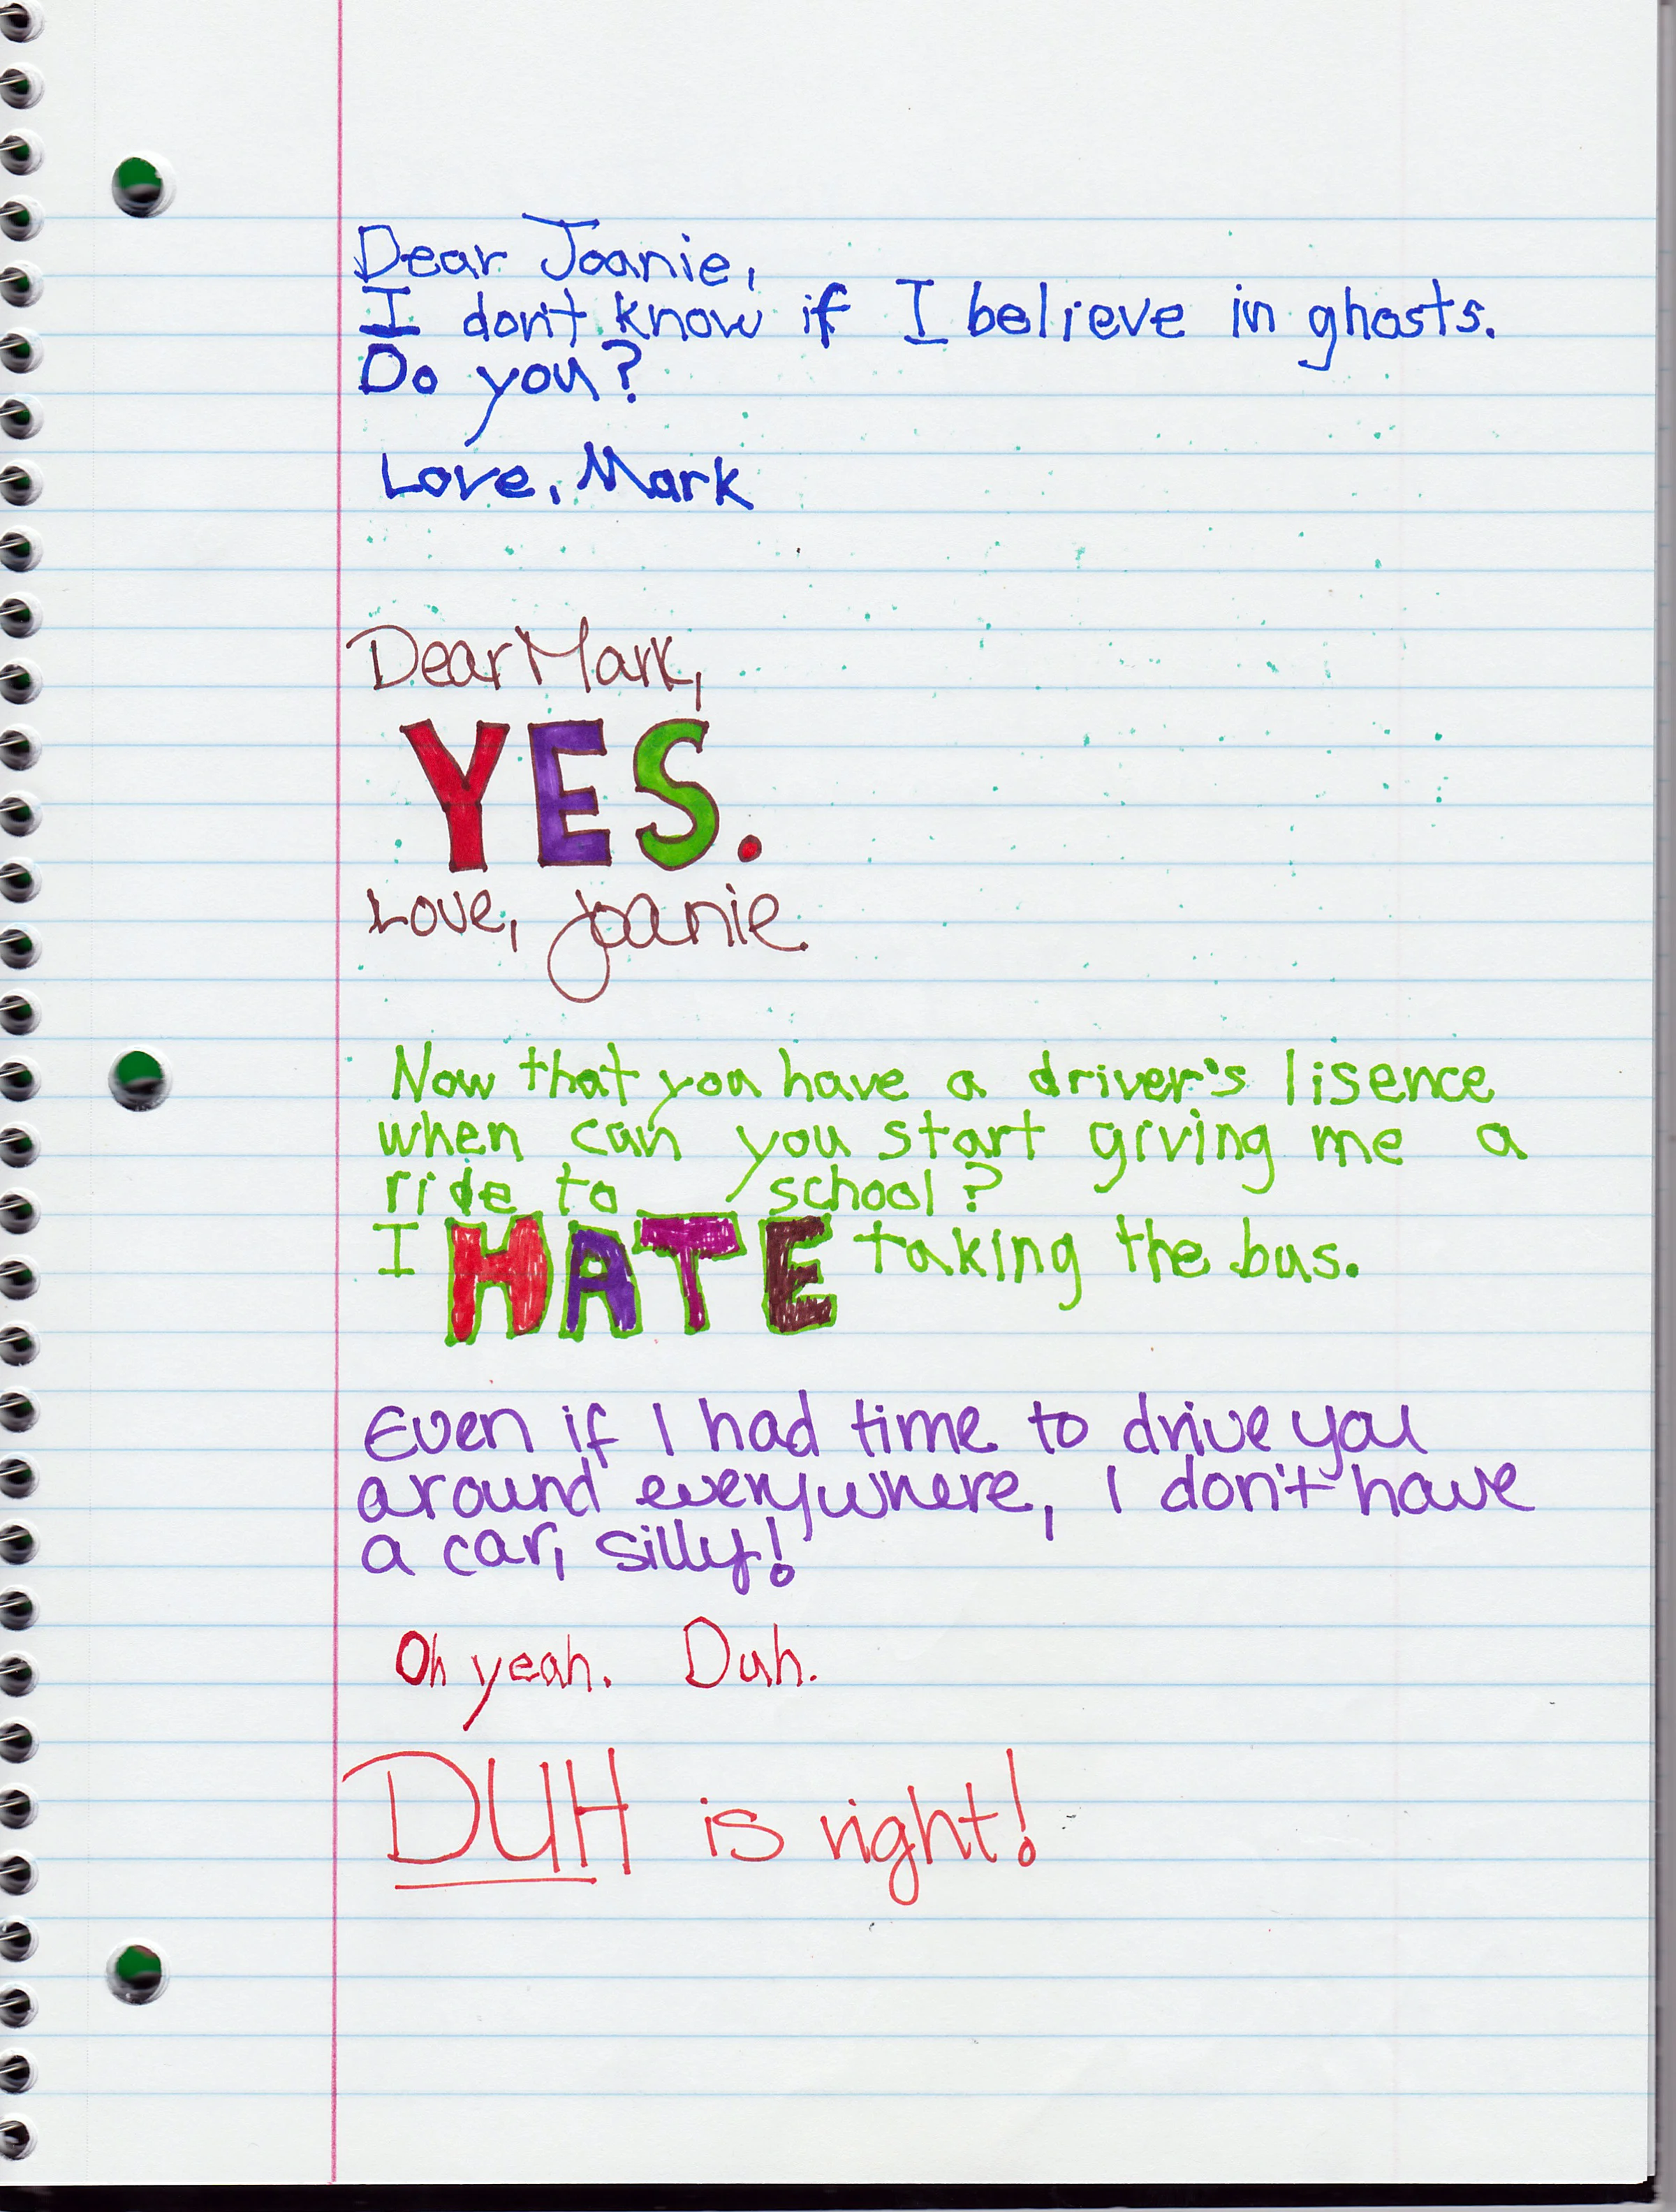 Dear Joanie,
I don't know if I believe in ghosts.
Do you?
Love, Mark
Dear Mark,
YES.
Love, Joanie
Now that you have a driver's lisence
when can you start giving me a
ride to school?
I HATE taking the bus.
Even if I had time to drive you
around everywhere, I don't have
a car, silly!
Oh yeah. Duh.
DUH is right!